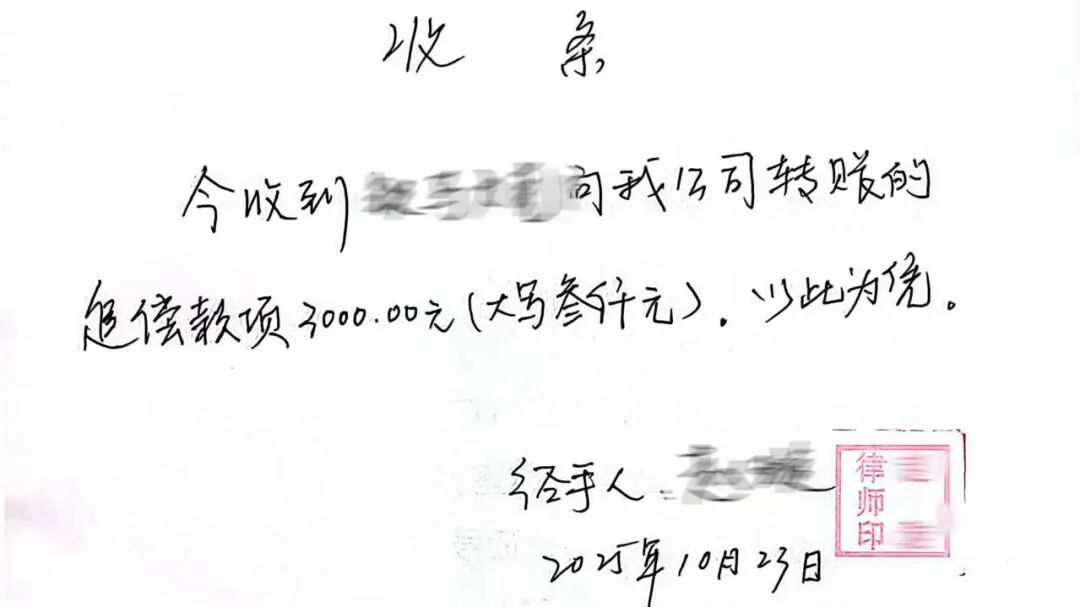 收 条
今收到 向我公司转账的
追偿款项3000.00元(大写叁仟元)。以此为凭。
经手人
律师印
2025年10月23日